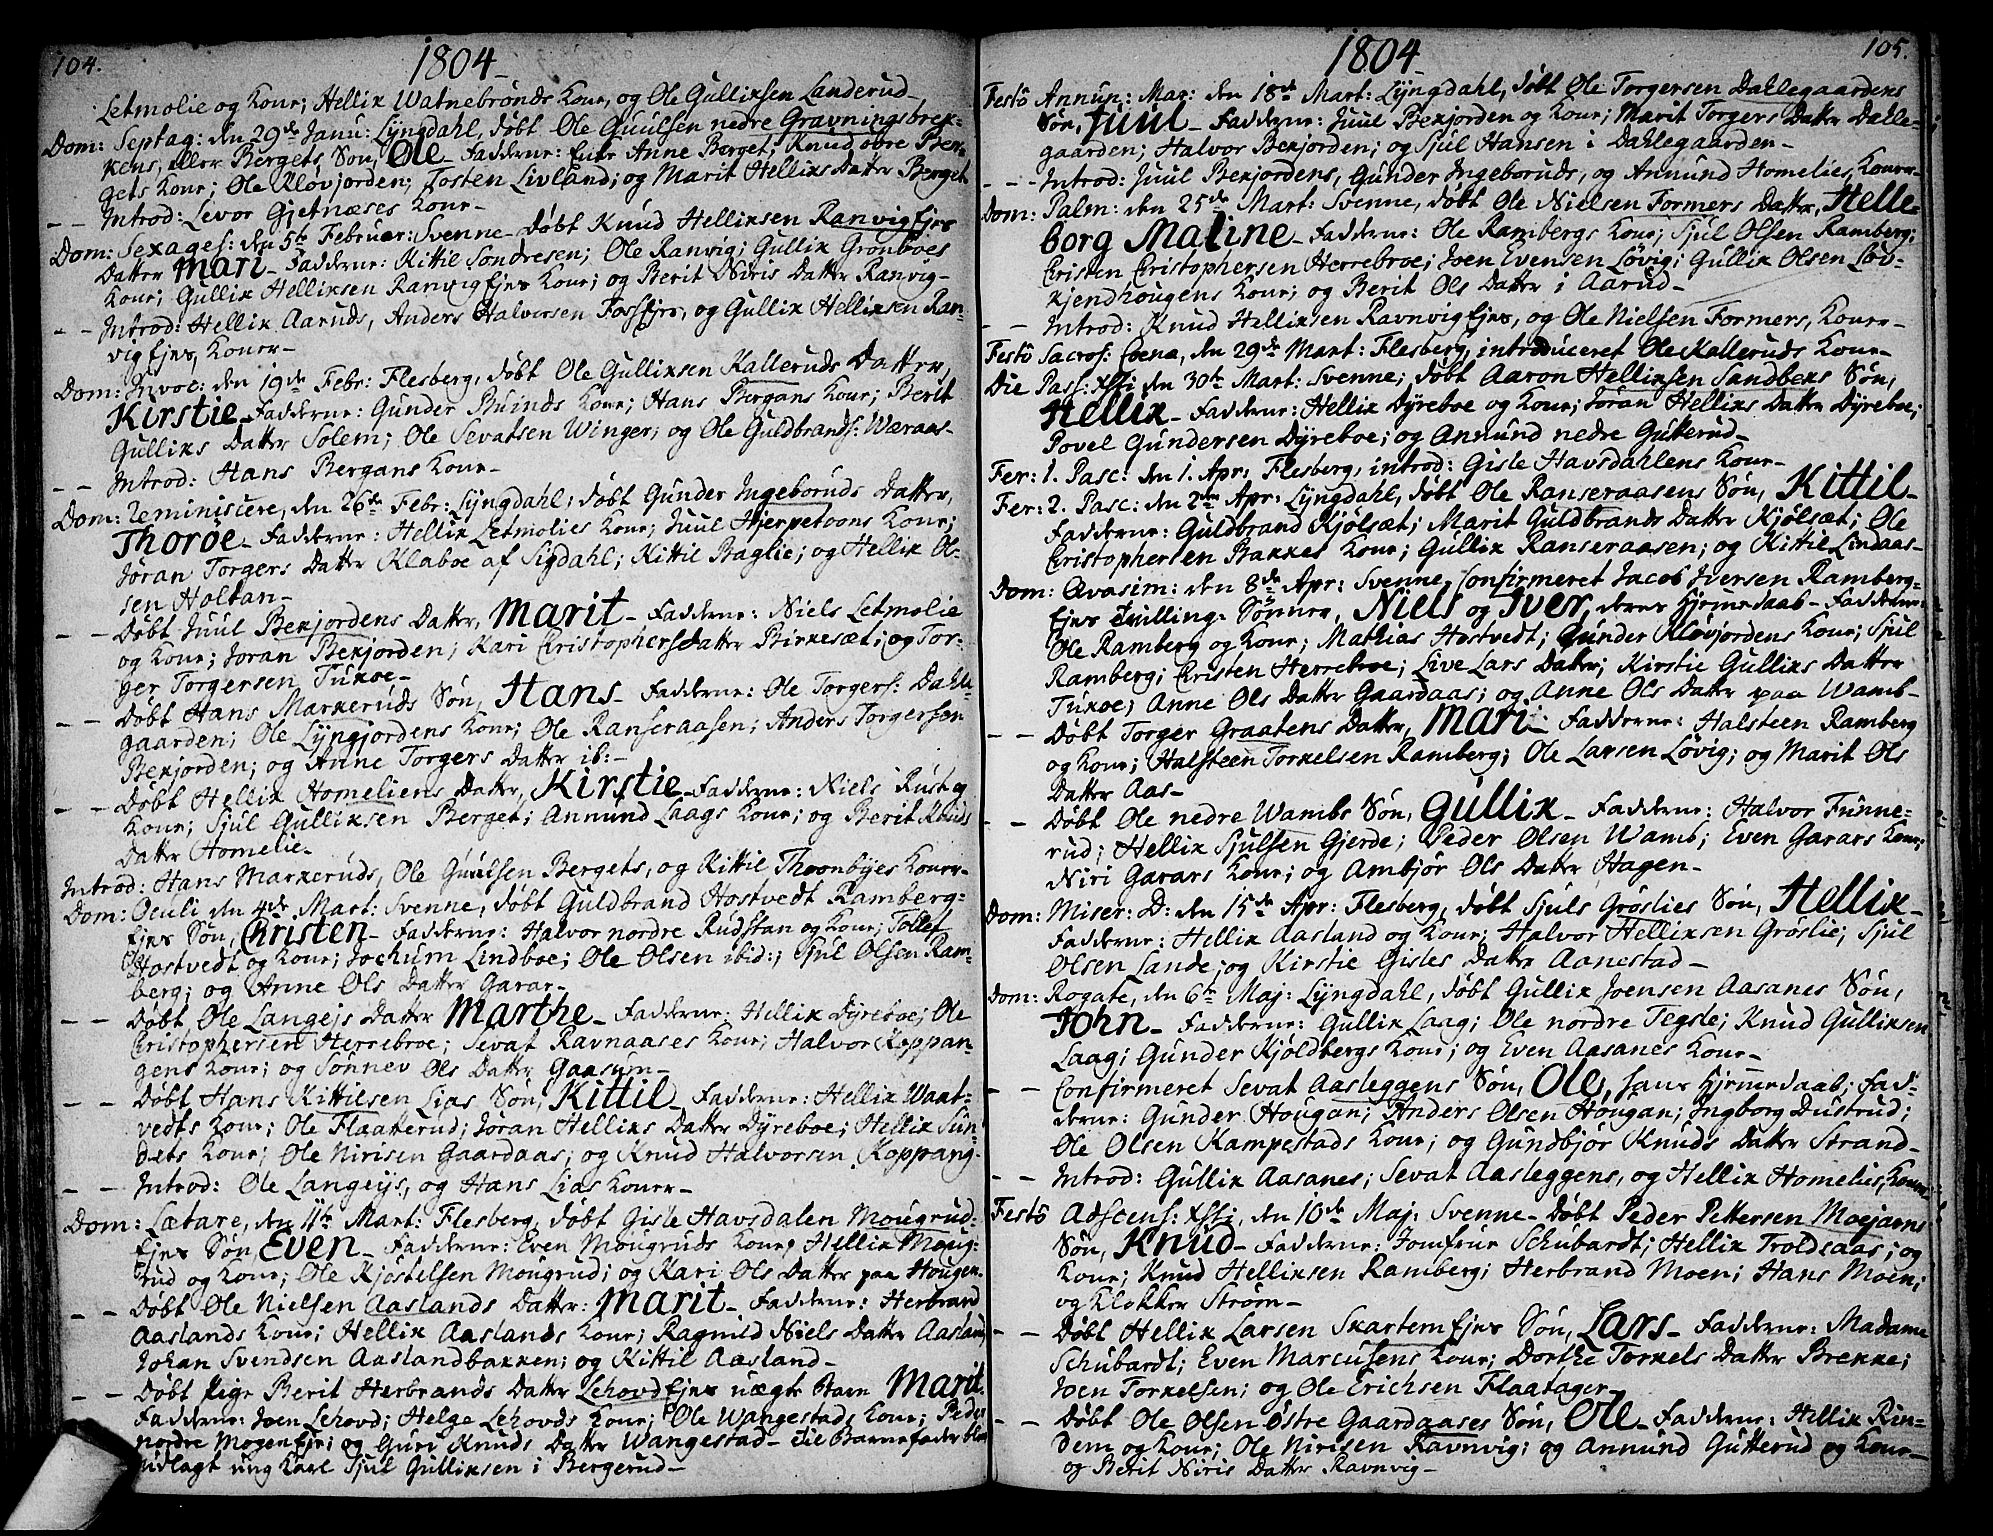 104.
1804
Letmolie og Kone; Hellik Watnebrønds Kone, og Ole Gulliksen Landerud_
Dom: Septag: den 29de Janu: Lyngdahl, døbt Ole Guulsen nedre Gravningsbrek=
kens, eller Bergets Søn, Ole_ Fadderne: Enke Anne Berget, Knud øvre Ber=
gets Kone; Ole Kløvjorden; Tosten Livland; og Marit Helliks Datter Berget
_ _ Introd: Levor Gjetnæses Kone_
Dom: Sexages: den 5te Februar: Svenne_ døbt Knud Helliksen Ranvig Ejes
Datter Mari_ Fadderne: Kittil Sondresen; Ole Ranvig; Gullik Grønboes
Kone; Gullik Helliksen Ranvig Ejes Kone; og Berit Niris Datter Ranvig_
_ _ Introd: Hellik Aaruds, Anders Halvorsen Fossejes, og Gullik Helliksen Ran=
vig Ejes, Koner_
Dom: Invoc: den 19de Febr: Flesberg, døbt Ole Gulliksen Kalleruds Datter,
Kirstie_ Fadderne: Gunder Buinds Kone; Hans Bergans Kone; Berit
Gulliks Datter Solem; Ole Sevatsen Winger; og Ole Guldbrands: Wæraas_
_ _ Introd: Hans Bergans Kone_
Dom: Reminiscere, den 26de Febr: Lyngdahl; døbt Gunder Ingeboruds Datter,
Thoroe_ Fadderne: Hellik Letmolies Kone; Juul Hjerpetoons Kone;
Jøran Torgers Datter Klaboe af Sigdahl; Kittil Baglie; og Hellik Ol=
sen Holtan_
_ _ Døbt Juul Bekjordens Datter, Marit_ Fadderne: Niels Letmolie
og Kone; Joran Bekjorden; Kari Christophersdatter Birkesæt; og Tor=
ger Torgersen Tukoe_
_ _ Døbt Hans Markeruds Søn, Hans_ Fadderne: Ole Torgers: Dahle=
gaarden; Ole Lyngjordens Kone; Ole Ranseraasen; Anders Torgersen
Bekjorden; og Anne Torgers Datter ib:_
_ _ Døbt Hellik Homeliens Datter, Kirstie_ Fadderne: Niels Rust og
Kone; Sjul Gulliksen Berget; Annund Laags Kone; og Berit Knuds
Datter Homelie_
Introd: Hans Markeruds, Ole Guulsen Bergets, og Kittil Thoonbyes Koner_
Dom: Oculi den 4de Mart: Svenne, døbt Guldbrand Hostvedt Ramberg=
Ejes Søn, Christen_ Fadderne: Halvor nordre Rudstan og Kone; Tollef
Hostvedt og Kone; Jochum Lindboe; Ole Olsen ibid:; Sjul Olsen Ram=
berg; og Anne Ols Datter Garar_
_ _ Døbt Ole Langejs Datter Marthe_ Fadderne: Hellik Dyreboe; Ole
Christophersen Herrebroe; Sevat Ravnaases Kone; Halvor Koppan=
gens Kone; og Sønnev Ols Datter Gaasum_
_ _ Døbt Hans Kittilsen Lias Søn, Kittil_ Fadderne: Hellik Waat=
vedts Kone; Ole Flaatterud; Jøran Helliks Datter Dyreboe; Hellik Sun=
dets Kone; Ole Nirisen Gaardaas; og Knud Halvorsen Koppang_
_ _ Introd: Ole Langeijs, og Hans Lias Koner_
Dom: Lætare, den 11te Mart: Flesberg, døbt Gisle Havsdalen Mougrud=
Ejes Søn Even_ Fadderne: Even Mougruds Kone; Hellik Moug=
rud og Kone; Ole Kjøstelsen Mougrud; og Kari Ols Datter paa Hougen_
_ Døbt Ole Nielsen Aaslands Datter: Marit_ Fadderne: Herbrand
Aaslands Kone; Hellik Aaslands Kone; Ragnild Niels Datter Aasland;
Johan Svendsen Aaslandbakken; og Kittil Aasland_
_ _ Døbt Pige Berit Herbrands Datter Lehovd Ejes uægte Barn Marit.
Fadderne: Joen Lehovd; Helge Lehovds Kone; Ole Wangestads Kone; Peder
nordre Mogen Eje; og Guri Knuds Datter Wangestad_ Til Barnefader blev
udlagt ung Karl Sjul Gulliksen i Bergerud_
1804
105.
Festo Annun: Mar: den 18de Mart: Lyngdahl, døbt Ole Torgersen Dahlegaardens
Søn, Juul_ Fadderne: Juul Bekjorden og Kone; Marit Torgers Datter Dahle=
gaarden; Halvor Bekjorden; og Sjul Hansen i Dahlegaarden_
_ _ _ Introd: Juul Bekjordens, Gunder Ingeboruds, og Annund Homelies, Koner_
Dom: Palm: den 25de Mart: Svenne, døbt Ole Nielsen Formers Datter, Helle=
borg Maline_ Fadderne: Ole Rambergs Kone; Sjul Olsen Ramberg;
Christen Christophersen Herrebroe; Joen Evensen Løvig; Gullik Olsen Løv=
kjendhougens Kone; og Berit Ols Datter i Aarud_
_ _ Introd: Knud Helliksen Ravnvig Ejes, og Ole Nielsen Formers, Koner_
Festo Sacros: Coena, den 29de Mart: Flesberg, introduceret Ole Kalleruds Kone_
Die Pas: Xsti den 30te Mart: Svenne; døbt Aaron Helliksen Sandbeks Søn,
Hellik_ Fadderne: Hellik Dyreboe og Kone; Jøran Helliks Datter Dyreboe;
Povel Gundersen Dyreboe; og Annund nedre Gutterud_
Fer: 1. Pasc: den 1. Apr: Flesberg, introd: Gisle Havsdahlens Kone_
Fer: 2. Pasc: den 2den Apr: Lyngdahl, døbt Ole Ranseraasens Søn, Kittil_
Fadderne: Guldbrand Kjølsæt; Marit Guldbrands Datter Kjølsæt; Ole
Christophersen Bakkes Kone; Gullik Ranseraasen; og Kittil Lindaas_
Dom: Qvasim: den 8de Apr: Svenne, confirmeret Jacob Iversen Ramberg=
Ejes Tvilling=Sønner, Niels og Iver, deres Hjemedaab_ Fadderne:
Ole Ramberg og Kone; Mathias Hostvedt; Gunder Kløvjordens Kone; Sjul
Ramberg; Christen Herrebroe; Live Lars Datter; Kirstie Gulliks Datter
Tukoe; Anne Ols Datter Gaardaas; og Anne Ols Datter paa Wamb_
_ _ Døbt Torger Graatens Datter, Mari_ Fadderne: Halsteen Ramberg
og Kone; Halsteen Torkelsen Ramberg; Ole Larsen Løvig; og Marit Ols
Datter Aas_
_ _ Døbt Ole nedre Wambs Søn, Gullik_ Fadderne: Halvor Funne=
rud; Hellik Sjulsen Gjerde; Peder Olsen Wamb; Even Garars Kone;
Niri Garars Kone; og Ambjør Ols Datter Hagen_
Dom: Miser: D: den 15de Apr: Flesberg, døbt Sjuls Grøslies Søn, Hellik_
Fadderne: Hellik Aasland og Kone; Halvor Helliksen Grøslie; Sjul
Olsen Lande; og Kirstie Gisles Datter Aanestad_
Dom: Rogate, den 6te Maj: Lyngdahl, døbt Gullik Joensen Aasanes Søn,
John_ Fadderne: Gullik Laag; Ole nordre Tegsle; Knud Gulliksen
Laag; Gunder Kjøldbergs Kone; og Even Aasanes Kone_
_ _ Confirmeret Sevat Aasleggens Søn, Ole, hans Hjemedaab; Fad=
derne: Gunder Hougan; Anders Olsen Hougan; Ingborg Dustrud;
Ole Olsen Kampestads Kone; og Gundbjør Knuds Datter Strand_
_ _ Introd: Gullik Aasanes; Sevat Aasleggens, og Hellik Homelies, Koner_
Festo Adscens: Xsti, den 10de Maj: Svenne_ Døbt Peder Pettersen Moejarns
Søn, Knud_ Fadderne: Jomfrue Schubardt; Hellik Troldsaas; og
Kone; Knud Helliksen Ramberg; Herbrand Moen; Hans Moen;
og Klokker Strøm_
_ _ Døbt Hellik Larsen Skartem Ejes Søn, Lars_ Fadderne: Madame
Schubardt; Even Marcusens Kone; Dorthe Torkels Datter Brekke;
Joen Torkelsen; og Ole Erichsen Flaatager_
_ _ Døbt Ole Olsen Østre Gaardaases Søn, Ole_ Fadderne: Hellik Rin=
dem og Kone; Ole Nirisen Ravnvig; og Annund Gutterud og Kone_
og Berit Niris Datter Ravnvig_